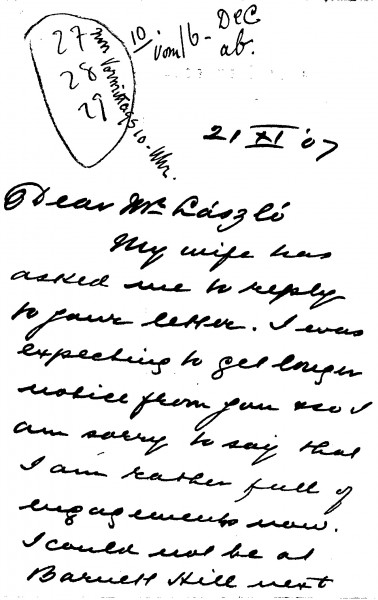 27
28
29
nur Vormittags 10-Uhr.
10
vom 16 - Dec
ab.
21 XI '07
Dear Mr László
My wife has
asked me to reply
to your letter. I was
expecting to get longer
notice from you & so I
am sorry to say that
I am rather full of
engagements now.
I could not be at
Barnett Hill next